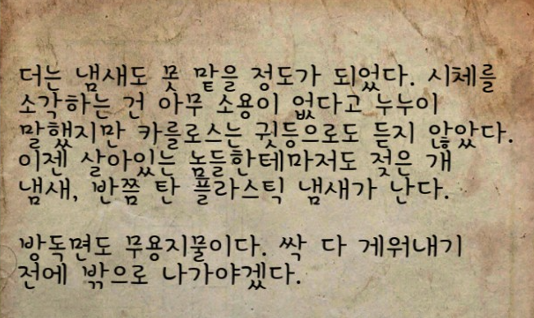 더는 냄새도 못 맡을 정도가 되었다. 시체를
소각하는 건 아무 소용이 없다고 누누이
말했지만 카를로스는 귓등으로도 듣지 않았다.
이젠 살아있는 놈들한테마저도 젖은 개
냄새, 반쯤 탄 플라스틱 냄새가 난다.
방독면도 무용지물이다. 싹 다 게워내기
전에 밖으로 나가야겠다.